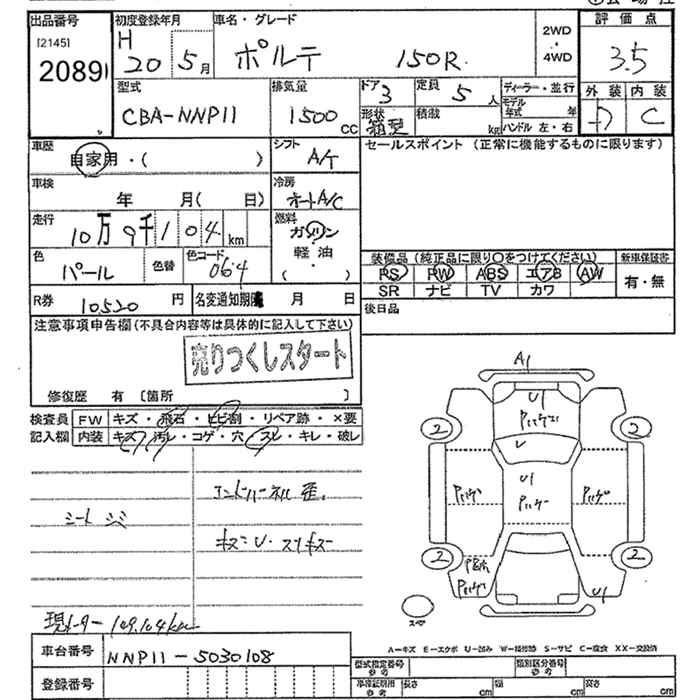 出品番号 初度登録年月 車名・グレード 2WD ・ 4WD 評価点
[2145]
2089 H 20 5月 ポルテ 150R 3.5
型式 排気量 ドア 定員 ディーラー・並行 外装 内装
CBA-NNP11 1500cc 3 5人 モデル年式 年 C
形状 箱型 積載 kg ハンドル 左・右
車歴 自家用・( ) シフト A/T セールスポイント (正常に機能するものに限ります)
車検 年 月( 日) 冷房 オートA/C
走行 10万9千104km 燃料 ガソリン
軽油
( )
色 パール 色替 色コード 064
装備品 (純正品に限り〇をつけてください) 新車保証書
PS PW ABS エアB AW 有・無
SR ナビ TV カワ
R券 10520円 名変通知期限 月 日 後日品
注意事項申告欄 (不具合内容等は具体的に記入して下さい)
売りつくしスタート
修復歴 有 〔箇所 〕
検査員 FW キズ・飛石・ヒビ割・リペア跡・×要
記入欄 内装 キズ・汚レ・コゲ・穴・スレ・キレ・破レ
シート シミ
キズ U・スリキズ
現メーター 109,104km
車台番号 NNP11-5030108
登録番号
A1
U1
2 2
U
U1
2 2
U1
スペア
A-キズ E-エクボ U-凹み W-補修跡 S-サビ C-腐食 XX-交換済
型式指定番号 参考 類別区分番号 参考
車検証期用 参考 長さ cm 幅 cm 高さ cm